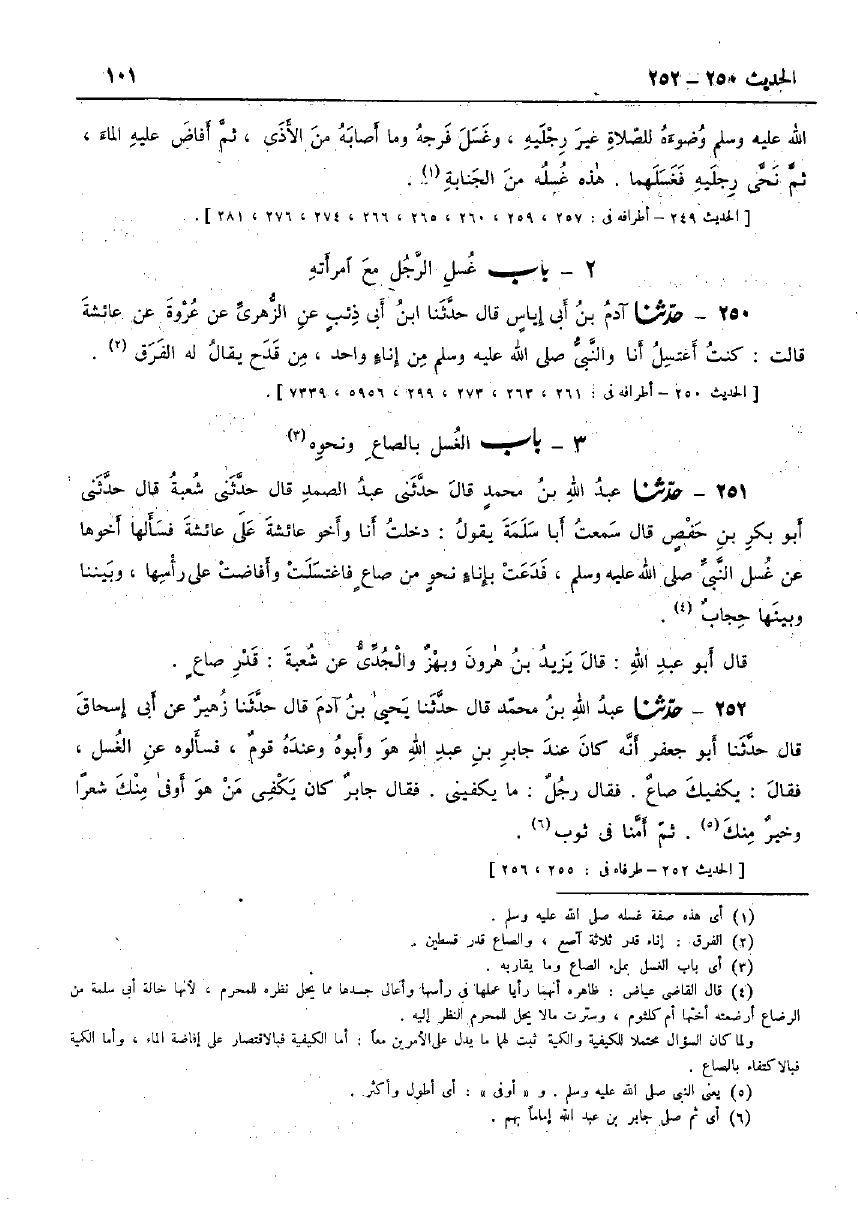 الحديث ٢٥٠ – ٢٥٢
١٠١
الله عليه وسلم وُضوءَهُ للصَّلاةِ غيرَ رِجْلَيهِ ، وغَسَلَ فَرجهُ وما أصابَهُ منَ الأَذَى ، ثمَّ أَفاضَ عليهِ الماءَ ،
ثمَّ نَحَّى رِجلَيهِ فَغَسَلَهما . هٰذه غُسلُه منَ الجَنابةِ (١) .
[ الحديث ٢٤٩ – أطرافه فى : ٢٥٧ ، ٢٥٩ ، ٢٦٠ ، ٢٦٥ ، ٢٦٦ ، ٢٧٤ ، ٢٧٦ ، ٢٨١ ] .
٢ – باب غُسلِ الرَّجُلِ معَ آمرأتهِ
٢٥٠ – حدّثنا آدمُ بنُ أبى إياسٍ قال حدَّثَنا ابنُ أبى ذِئبٍ عنِ الزُّهرىِّ عن عُرْوةَ عن عائشةَ
قالت : كنتُ أَغتسِلُ أنا والنَّبىُّ صلى الله عليه وسلم مِن إناءٍ واحد ، مِن قَدَحٍ يقالُ له الفَرَق (٢) .
[ الحديث ٢٥٠ – أطرافه فى : ٢٦١ ، ٢٦٣ ، ٢٧٣ ، ٢٩٩ ، ٥٩٥٦ ، ٧٣٣٩ ] .
٣ – باب الغُسل بالصاعِ ونحوِه (٣)
٢٥١ – حدّثنا عبدُ اللهِ بنُ محمدٍ قالَ حدَّثَنى عبدُ الصمدِ قال حدَّثَنى شُعبةُ قال حدَّثَنى
أبو بكرِ بنِ حَفْصٍ قال سَمعتُ أبا سَلَمَةَ يقولُ : دخلتُ أنا وأخو عائشةَ عَلَى عائشةَ فسَألها أخوها
عن غُسلِ النَّبىِّ صلى الله عليه وسلم ، فَدَعَتْ بإناءٍ نحوٍ من صاعٍ فاغتسَلَتْ وأفاضتْ على رأسِها ، وبَيننا
وبينَها حِجابٌ (٤) .
قال أبو عبدِ اللهِ : قالَ يَزيدُ بنُ هٰرونَ وبهْزٌ والْجُدِّىُّ عن شُعبةَ : قَدْرِ صاعٍ .
٢٥٢ – حدّثنا عبدُ اللهِ بنُ محمّد قال حدَّثَنا يَحيىٰ بنُ آدمَ قال حدَّثَنا زُهيرٌ عن أبى إسحاقَ
قال حدَّثَنا أبو جعفرٍ أنَّه كانَ عندَ جابرِ بنِ عبدِ اللهِ هوَ وأبوهُ وعندَهُ قومٌ ، فسألوه عنِ الغُسلِ ،
فقالَ : يكفيكَ صاعٌ . فقال رجُلٌ : ما يكفينى . فقال جابرٌ كان يَكْفِى مَنْ هوَ أَوفىٰ مِنْكَ شعرًا
وخيرٌ مِنكَ (٥) . ثمّ أمَّنا فى ثوب (٦) .
[ الحديث ٢٥٢ – طرفاه فى : ٢٥٥ ، ٢٥٦ ]
(١) أى هذه صفة غسله صلى الله عليه وسلم .
(٢) الفرق : إناء قدر ثلاثة آصع ، والصاع قدر قسطين .
(٣) أى باب الغسل بملء الصاع وما يقاربه .
(٤) قال القاضى عياض : ظاهره أنهما رأيا عملها فى رأسها وأعالى جسدها مما يحل نظره للمحرم ، لأنها خالة أبى سلمة من
الرضاع أرضعته أختها أم كلثوم ، وسترت مالا يحل للمحرم النظر إليه .
ولما كان السؤال محتملا للكيفية والكمية ثبت لهما ما يدل على الأمرين معاً : أما الكيفية فبالاقتصار على إفاضة الماء ، وأما الكمية
فبالاكتفاء بالصاع .
(٥) يعنى النبى صلى الله عليه وسلم . و « أوفى » : أى أطول وأكثر .
(٦) أى ثم صلى جابر بن عبد الله إماماً بهم .